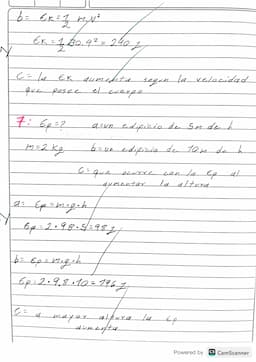 b= Ek=1/2 m.v²
Ek=1/2 30.4²= 240 J
C= la Ek aumenta segun la velocidad
que posee el cuerpo
7: Ep=? a=un edificio de 5m de h
m=2 kg b=un edificio de 10m de h
C= que ocurre con la Ep al
aumentar la altura
a= Ep=m•g•h
Ep=2•9.8•5=98 J
b= Ep=m•g•h
Ep=2•9.8•10=196 J
C= a mayor altura la Ep
aumenta
Powered by CS CamScanner